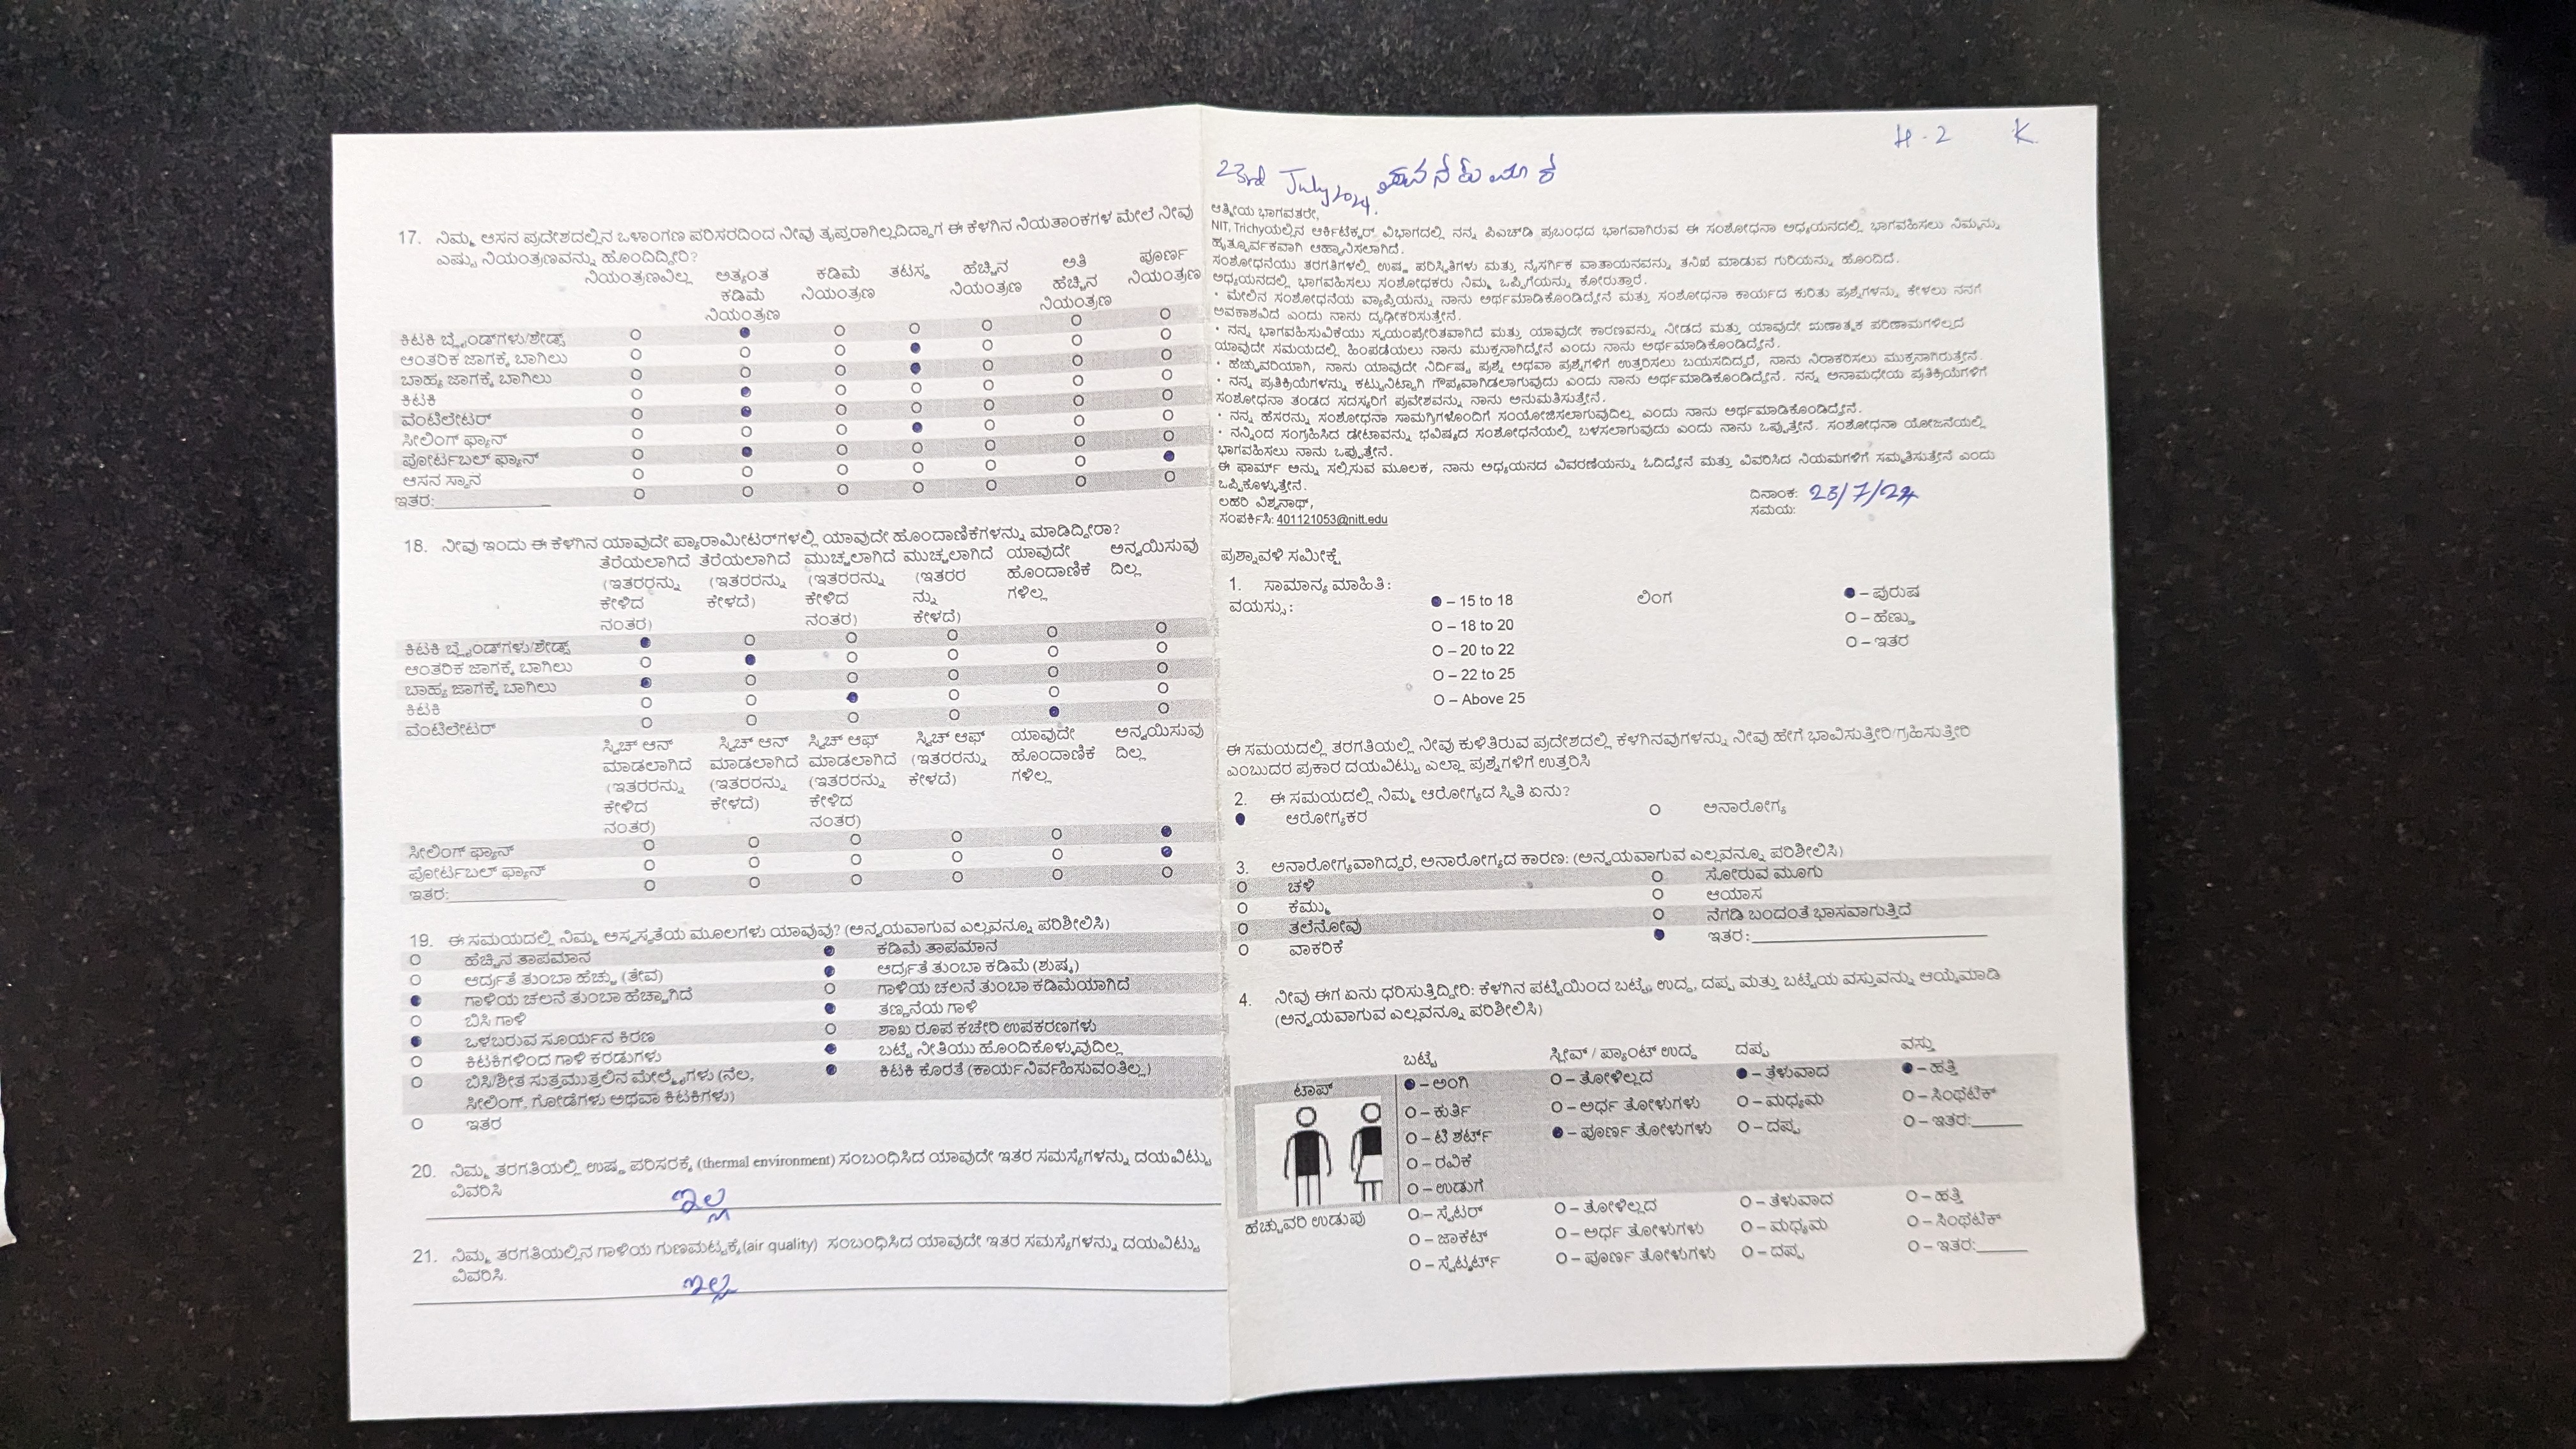 17. ನಿಮ್ಮ ಆಸನ ಪ್ರದೇಶದಲ್ಲಿನ ಒಳಾಂಗಣ ಪರಿಸರದಿಂದ ನೀವು ತೃಪ್ತರಾಗಿಲ್ಲದಿದ್ದಾಗ ಈ ಕೆಳಗಿನ ನಿಯತಾಂಕಗಳ ಮೇಲೆ ನೀವು
ಎಷ್ಟು ನಿಯಂತ್ರಣವನ್ನು ಹೊಂದಿದ್ದೀರಿ?
ನಿಯಂತ್ರಣವಿಲ್ಲ ಅತ್ಯಂತ ಕಡಿಮೆ ನಿಯಂತ್ರಣ ಕಡಿಮೆ ನಿಯಂತ್ರಣ ತಟಸ್ಥ ಹೆಚ್ಚಿನ ನಿಯಂತ್ರಣ ಅತಿ ಹೆಚ್ಚಿನ ನಿಯಂತ್ರಣ ಪೂರ್ಣ ನಿಯಂತ್ರಣ
ಕಿಟಕಿ ಬ್ಲೈಂಡ್‌ಗಳು/ಶೇಡ್ಸ್
ಆಂತರಿಕ ಜಾಗಕ್ಕೆ ಬಾಗಿಲು
ಬಾಹ್ಯ ಜಾಗಕ್ಕೆ ಬಾಗಿಲು
ಕಿಟಕಿ
ವೆಂಟಿಲೇಟರ್
ಸೀಲಿಂಗ್ ಫ್ಯಾನ್
ಪೋರ್ಟಬಲ್ ಫ್ಯಾನ್
ಆಸನ ಸ್ಥಾನ
ಇತರ:
18. ನೀವು ಇಂದು ಈ ಕೆಳಗಿನ ಯಾವುದೇ ಪ್ಯಾರಾಮೀಟರ್‌ಗಳಲ್ಲಿ ಯಾವುದೇ ಹೊಂದಾಣಿಕೆಗಳನ್ನು ಮಾಡಿದ್ದೀರಾ?
ತೆರೆಯಲಾಗಿದೆ (ಇತರರನ್ನು ಕೇಳಿದ ನಂತರ) ತೆರೆಯಲಾಗಿದೆ (ಇತರರನ್ನು ಕೇಳದೆ) ಮುಚ್ಚಲಾಗಿದೆ (ಇತರರನ್ನು ಕೇಳಿದ ನಂತರ) ಮುಚ್ಚಲಾಗಿದೆ (ಇತರರ ನ್ನು ಕೇಳದೆ) ಯಾವುದೇ ಹೊಂದಾಣಿಕೆ ಗಳಿಲ್ಲ ಅನ್ವಯಿಸುವು ದಿಲ್ಲ
ಕಿಟಕಿ ಬ್ಲೈಂಡ್‌ಗಳು/ಶೇಡ್ಸ್
ಆಂತರಿಕ ಜಾಗಕ್ಕೆ ಬಾಗಿಲು
ಬಾಹ್ಯ ಜಾಗಕ್ಕೆ ಬಾಗಿಲು
ಕಿಟಕಿ
ವೆಂಟಿಲೇಟರ್
ಸ್ವಿಚ್ ಆನ್ ಮಾಡಲಾಗಿದೆ (ಇತರರನ್ನು ಕೇಳಿದ ನಂತರ) ಸ್ವಿಚ್ ಆನ್ ಮಾಡಲಾಗಿದೆ (ಇತರರನ್ನು ಕೇಳದೆ) ಸ್ವಿಚ್ ಆಫ್ ಮಾಡಲಾಗಿದೆ (ಇತರರನ್ನು ಕೇಳಿದ ನಂತರ) ಸ್ವಿಚ್ ಆಫ್ (ಇತರರನ್ನು ಕೇಳದೆ) ಯಾವುದೇ ಹೊಂದಾಣಿಕೆ ಗಳಿಲ್ಲ ಅನ್ವಯಿಸುವು ದಿಲ್ಲ
ಸೀಲಿಂಗ್ ಫ್ಯಾನ್
ಪೋರ್ಟಬಲ್ ಫ್ಯಾನ್
ಇತರ:
19. ಈ ಸಮಯದಲ್ಲಿ ನಿಮ್ಮ ಅಸ್ವಸ್ಥತೆಯ ಮೂಲಗಳು ಯಾವುವು? (ಅನ್ವಯವಾಗುವ ಎಲ್ಲವನ್ನೂ ಪರಿಶೀಲಿಸಿ)
ಹೆಚ್ಚಿನ ತಾಪಮಾನ ಕಡಿಮೆ ತಾಪಮಾನ
ಆರ್ದ್ರತೆ ತುಂಬಾ ಹೆಚ್ಚು (ತೇವ) ಆರ್ದ್ರತೆ ತುಂಬಾ ಕಡಿಮೆ (ಶುಷ್ಕ)
ಗಾಳಿಯ ಚಲನೆ ತುಂಬಾ ಹೆಚ್ಚಾಗಿದೆ ಗಾಳಿಯ ಚಲನೆ ತುಂಬಾ ಕಡಿಮೆಯಾಗಿದೆ
ಬಿಸಿ ಗಾಳಿ ತಣ್ಣನೆಯ ಗಾಳಿ
ಒಳಬರುವ ಸೂರ್ಯನ ಕಿರಣ ಶಾಖ ರೂಪ ಕಚೇರಿ ಉಪಕರಣಗಳು
ಕಿಟಕಿಗಳಿಂದ ಗಾಳಿ ಕರಡುಗಳು ಬಟ್ಟೆ ನೀತಿಯು ಹೊಂದಿಕೊಳ್ಳುವುದಿಲ್ಲ
ಬಿಸಿ/ಶೀತ ಸುತ್ತಮುತ್ತಲಿನ ಮೇಲ್ಮೈಗಳು (ನೆಲ, ಕಿಟಕಿ ಕೊರತೆ (ಕಾರ್ಯನಿರ್ವಹಿಸುವಂತಿಲ್ಲ)
ಸೀಲಿಂಗ್, ಗೋಡೆಗಳು ಅಥವಾ ಕಿಟಕಿಗಳು)
ಇತರ
20. ನಿಮ್ಮ ತರಗತಿಯಲ್ಲಿ ಉಷ್ಣ ಪರಿಸರಕ್ಕೆ (thermal environment) ಸಂಬಂಧಿಸಿದ ಯಾವುದೇ ಇತರ ಸಮಸ್ಯೆಗಳನ್ನು ದಯವಿಟ್ಟು
ವಿವರಿಸಿ
ಇಲ್ಲ
21. ನಿಮ್ಮ ತರಗತಿಯಲ್ಲಿನ ಗಾಳಿಯ ಗುಣಮಟ್ಟಕ್ಕೆ(air quality) ಸಂಬಂಧಿಸಿದ ಯಾವುದೇ ಇತರ ಸಮಸ್ಯೆಗಳನ್ನು ದಯವಿಟ್ಟು
ವಿವರಿಸಿ.
ಇಲ್ಲ
H-2 K
23rd July 2024.
ಆತ್ಮೀಯ ಭಾಗವತರೇ,
NIT, Trichyಯಲ್ಲಿನ ಆರ್ಕಿಟೆಕ್ಚರ್ ವಿಭಾಗದಲ್ಲಿ ನನ್ನ ಪಿಎಚ್‌ಡಿ ಪ್ರಬಂಧದ ಭಾಗವಾಗಿರುವ ಈ ಸಂಶೋಧನಾ ಅಧ್ಯಯನದಲ್ಲಿ ಭಾಗವಹಿಸಲು ನಿಮ್ಮನ್ನು
ಹೃತ್ಪೂರ್ವಕವಾಗಿ ಆಹ್ವಾನಿಸಲಾಗಿದೆ.
ಸಂಶೋಧನೆಯು ತರಗತಿಗಳಲ್ಲಿ ಉಷ್ಣ ಪರಿಸ್ಥಿತಿಗಳು ಮತ್ತು ನೈಸರ್ಗಿಕ ವಾತಾಯನವನ್ನು ತನಿಖೆ ಮಾಡುವ ಗುರಿಯನ್ನು ಹೊಂದಿದೆ.
ಅಧ್ಯಯನದಲ್ಲಿ ಭಾಗವಹಿಸಲು ಸಂಶೋಧಕರು ನಿಮ್ಮ ಒಪ್ಪಿಗೆಯನ್ನು ಕೋರುತ್ತಾರೆ.
• ಮೇಲಿನ ಸಂಶೋಧನೆಯ ವ್ಯಾಪ್ತಿಯನ್ನು ನಾನು ಅರ್ಥಮಾಡಿಕೊಂಡಿದ್ದೇನೆ ಮತ್ತು ಸಂಶೋಧನಾ ಕಾರ್ಯದ ಕುರಿತು ಪ್ರಶ್ನೆಗಳನ್ನು ಕೇಳಲು ನನಗೆ
ಅವಕಾಶವಿದೆ ಎಂದು ನಾನು ದೃಢೀಕರಿಸುತ್ತೇನೆ.
• ನನ್ನ ಭಾಗವಹಿಸುವಿಕೆಯು ಸ್ವಯಂಪ್ರೇರಿತವಾಗಿದೆ ಮತ್ತು ಯಾವುದೇ ಕಾರಣವನ್ನು ನೀಡದೆ ಮತ್ತು ಯಾವುದೇ ಋಣಾತ್ಮಕ ಪರಿಣಾಮಗಳಿಲ್ಲದೆ
ಯಾವುದೇ ಸಮಯದಲ್ಲಿ ಹಿಂಪಡೆಯಲು ನಾನು ಮುಕ್ತನಾಗಿದ್ದೇನೆ ಎಂದು ನಾನು ಅರ್ಥಮಾಡಿಕೊಂಡಿದ್ದೇನೆ.
• ಹೆಚ್ಚುವರಿಯಾಗಿ, ನಾನು ಯಾವುದೇ ನಿರ್ದಿಷ್ಟ ಪ್ರಶ್ನೆ ಅಥವಾ ಪ್ರಶ್ನೆಗಳಿಗೆ ಉತ್ತರಿಸಲು ಬಯಸದಿದ್ದರೆ, ನಾನು ನಿರಾಕರಿಸಲು ಮುಕ್ತನಾಗಿರುತ್ತೇನೆ.
• ನನ್ನ ಪ್ರತಿಕ್ರಿಯೆಗಳನ್ನು ಕಟ್ಟುನಿಟ್ಟಾಗಿ ಗೌಪ್ಯವಾಗಿಡಲಾಗುವುದು ಎಂದು ನಾನು ಅರ್ಥಮಾಡಿಕೊಂಡಿದ್ದೇನೆ. ನನ್ನ ಅನಾಮಧೇಯ ಪ್ರತಿಕ್ರಿಯೆಗಳಿಗೆ
ಸಂಶೋಧನಾ ತಂಡದ ಸದಸ್ಯರಿಗೆ ಪ್ರವೇಶವನ್ನು ನಾನು ಅನುಮತಿಸುತ್ತೇನೆ.
• ನನ್ನ ಹೆಸರನ್ನು ಸಂಶೋಧನಾ ಸಾಮಗ್ರಿಗಳೊಂದಿಗೆ ಸಂಯೋಜಿಸಲಾಗುವುದಿಲ್ಲ ಎಂದು ನಾನು ಅರ್ಥಮಾಡಿಕೊಂಡಿದ್ದೇನೆ.
• ನನ್ನಿಂದ ಸಂಗ್ರಹಿಸಿದ ಡೇಟಾವನ್ನು ಭವಿಷ್ಯದ ಸಂಶೋಧನೆಯಲ್ಲಿ ಬಳಸಲಾಗುವುದು ಎಂದು ನಾನು ಒಪ್ಪುತ್ತೇನೆ. ಸಂಶೋಧನಾ ಯೋಜನೆಯಲ್ಲಿ
ಭಾಗವಹಿಸಲು ನಾನು ಒಪ್ಪುತ್ತೇನೆ.
ಈ ಫಾರ್ಮ್ ಅನ್ನು ಸಲ್ಲಿಸುವ ಮೂಲಕ, ನಾನು ಅಧ್ಯಯನದ ವಿವರಣೆಯನ್ನು ಓದಿದ್ದೇನೆ ಮತ್ತು ವಿವರಿಸಿದ ನಿಯಮಗಳಿಗೆ ಸಮ್ಮತಿಸುತ್ತೇನೆ ಎಂದು
ಒಪ್ಪಿಕೊಳ್ಳುತ್ತೇನೆ.
ಲಹರಿ ವಿಶ್ವನಾಥ್, ದಿನಾಂಕ: 23/7/24
ಸಂಪರ್ಕಿಸಿ: 401121053@nitt.edu ಸಮಯ:
ಪ್ರಶ್ನಾವಳಿ ಸಮೀಕ್ಷೆ
1. ಸಾಮಾನ್ಯ ಮಾಹಿತಿ:
ವಯಸ್ಸು: – 15 to 18 ಲಿಂಗ – ಪುರುಷ
O – 18 to 20 O – ಹೆಣ್ಣು
O – 20 to 22 O – ಇತರ
O – 22 to 25
O – Above 25
ಈ ಸಮಯದಲ್ಲಿ ತರಗತಿಯಲ್ಲಿ ನೀವು ಕುಳಿತಿರುವ ಪ್ರದೇಶದಲ್ಲಿ ಕೆಳಗಿನವುಗಳನ್ನು ನೀವು ಹೇಗೆ ಭಾವಿಸುತ್ತೀರಿ/ಗ್ರಹಿಸುತ್ತೀರಿ
ಎಂಬುದರ ಪ್ರಕಾರ ದಯವಿಟ್ಟು ಎಲ್ಲಾ ಪ್ರಶ್ನೆಗಳಿಗೆ ಉತ್ತರಿಸಿ
2. ಈ ಸಮಯದಲ್ಲಿ ನಿಮ್ಮ ಆರೋಗ್ಯದ ಸ್ಥಿತಿ ಏನು?
ಆರೋಗ್ಯಕರ O ಅನಾರೋಗ್ಯ
3. ಅನಾರೋಗ್ಯವಾಗಿದ್ದರೆ, ಅನಾರೋಗ್ಯದ ಕಾರಣ: (ಅನ್ವಯವಾಗುವ ಎಲ್ಲವನ್ನೂ ಪರಿಶೀಲಿಸಿ)
O ಚಳಿ O ಸೋರುವ ಮೂಗು
O ಕೆಮ್ಮು O ಆಯಾಸ
O ತಲೆನೋವು O ನೆಗಡಿ ಬಂದಂತೆ ಭಾಸವಾಗುತ್ತಿದೆ
O ವಾಕರಿಕೆ ಇತರ:
4. ನೀವು ಈಗ ಏನು ಧರಿಸುತ್ತಿದ್ದೀರಿ: ಕೆಳಗಿನ ಪಟ್ಟಿಯಿಂದ ಬಟ್ಟೆ, ಉದ್ದ, ದಪ್ಪ ಮತ್ತು ಬಟ್ಟೆಯ ವಸ್ತುವನ್ನು ಆಯ್ಕೆಮಾಡಿ
(ಅನ್ವಯವಾಗುವ ಎಲ್ಲವನ್ನೂ ಪರಿಶೀಲಿಸಿ)
ಬಟ್ಟೆ ಸ್ಲೀವ್ / ಪ್ಯಾಂಟ್ ಉದ್ದ ದಪ್ಪ ವಸ್ತು
ಟಾಪ್ – ಅಂಗಿ O – ತೋಳಿಲ್ಲದ – ತೆಳುವಾದ – ಹತ್ತಿ
O – ಕುರ್ತಿ O – ಅರ್ಧ ತೋಳುಗಳು O – ಮಧ್ಯಮ O – ಸಿಂಥಟಿಕ್
O – ಟಿ ಶರ್ಟ್ – ಪೂರ್ಣ ತೋಳುಗಳು O – ದಪ್ಪ O – ಇತರ:
O – ರವಿಕೆ
O – ಉಡುಗೆ
ಹೆಚ್ಚುವರಿ ಉಡುಪು O – ಸ್ವೆಟರ್ O – ತೋಳಿಲ್ಲದ O – ತೆಳುವಾದ O – ಹತ್ತಿ
O – ಜಾಕೆಟ್ O – ಅರ್ಧ ತೋಳುಗಳು O – ಮಧ್ಯಮ O – ಸಿಂಥಟಿಕ್
O – ಸ್ವೆಟ್ಶರ್ಟ್ O – ಪೂರ್ಣ ತೋಳುಗಳು O – ದಪ್ಪ O – ಇತರ: